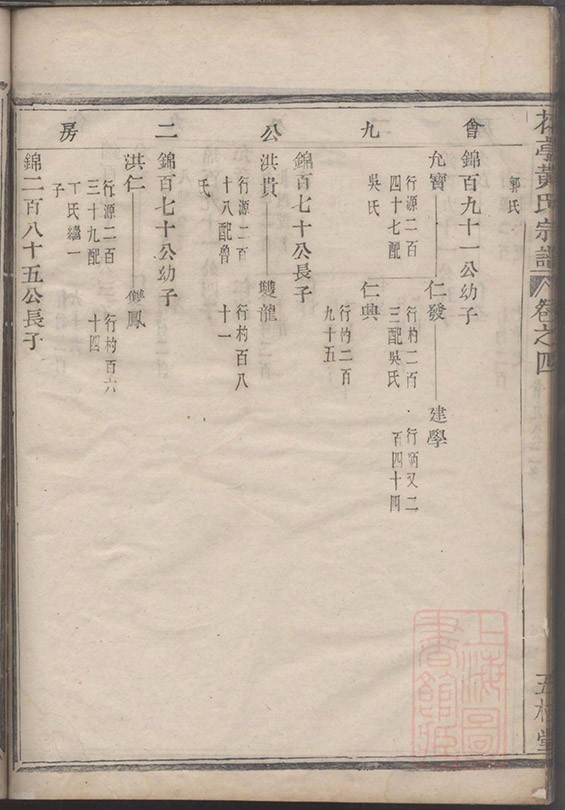 黃氏宗譜
卷之四
會九公二房
郭氏
錦百九十一公幼子
允寶
仁發
建學
行源二百
四十七配
吳氏
行杓二百
三配吳氏
行炳又二
百四十四
仁興
行杓二百
九十五
錦百七十公長子
洪貴
雙龍
行源二百
十八配魯
氏
行杓百八
十一
錦百七十公幼子
洪仁
雙鳳
行源二百
三十九配
丁氏繼一
子
行杓百六
十四
錦二百八十五公長子
上海圖書館藏